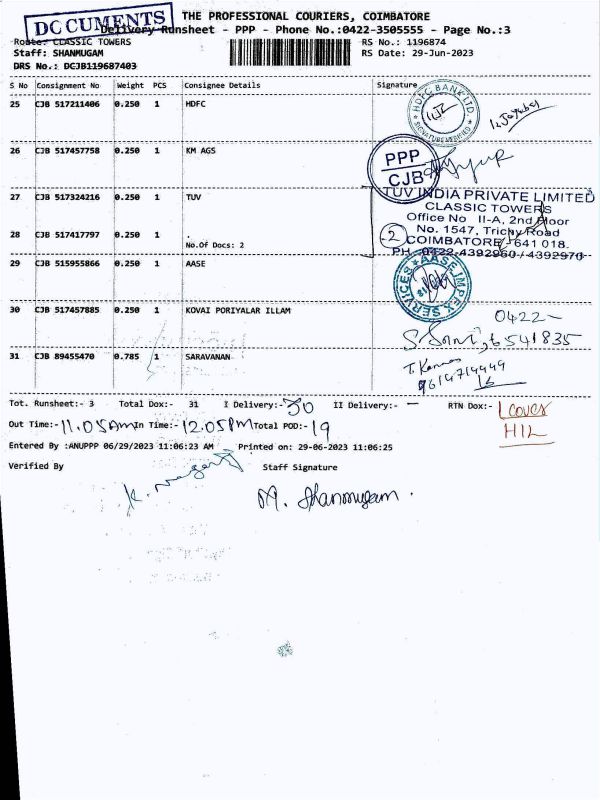 DOCUMENTS
THE PROFESSIONAL COURIERS, COIMBATORE
Delivery Runsheet - PPP - Phone No.:0422-3505555 - Page No.:3
Route: CLASSIC TOWERS
RS No.: 1196874
Staff: SHANMUGAM
RS Date: 29-Jun-2023
DRS No.: DCJB119687403
S No Consignment No Weight PCS Consignee Details Signature
25 CJB 517211406 0.250 1 HDFC
HDFC BANK LTD.
SIGNATURE VERIFIED
26 CJB 517457758 0.250 1 KM AGS
PPP
CJB
27 CJB 517324216 0.250 1 TUV
TUV INDIA PRIVATE LIMITED
CLASSIC TOWERS
Office No II-A, 2nd Floor
No. 1547, Trichy Road
COIMBATORE - 641 018.
PH : 0422-4392960 / 4392970
28 CJB 517417797 0.250 1 .
No.Of Docs: 2
2
29 CJB 515955866 0.250 1 AASE
AASE IMPEX & SERVICES
30 CJB 517457885 0.250 1 KOVAI PORIYALAR ILLAM
0422-
6541835
31 CJB 89455470 0.785 1 SARAVANAN
T. Kannan
9614714449
16
Tot. Runsheet:- 3 Total Dox:- 31 I Delivery:- 30 II Delivery:- — RTN Dox:- 1 cover
HIL
Out Time:- 11.05Am In Time:- 12.05PM Total POD:- 19
Entered By :ANUPPP 06/29/2023 11:06:23 AM Printed on: 29-06-2023 11:06:25
Verified By Staff Signature
M. Shanmugam.